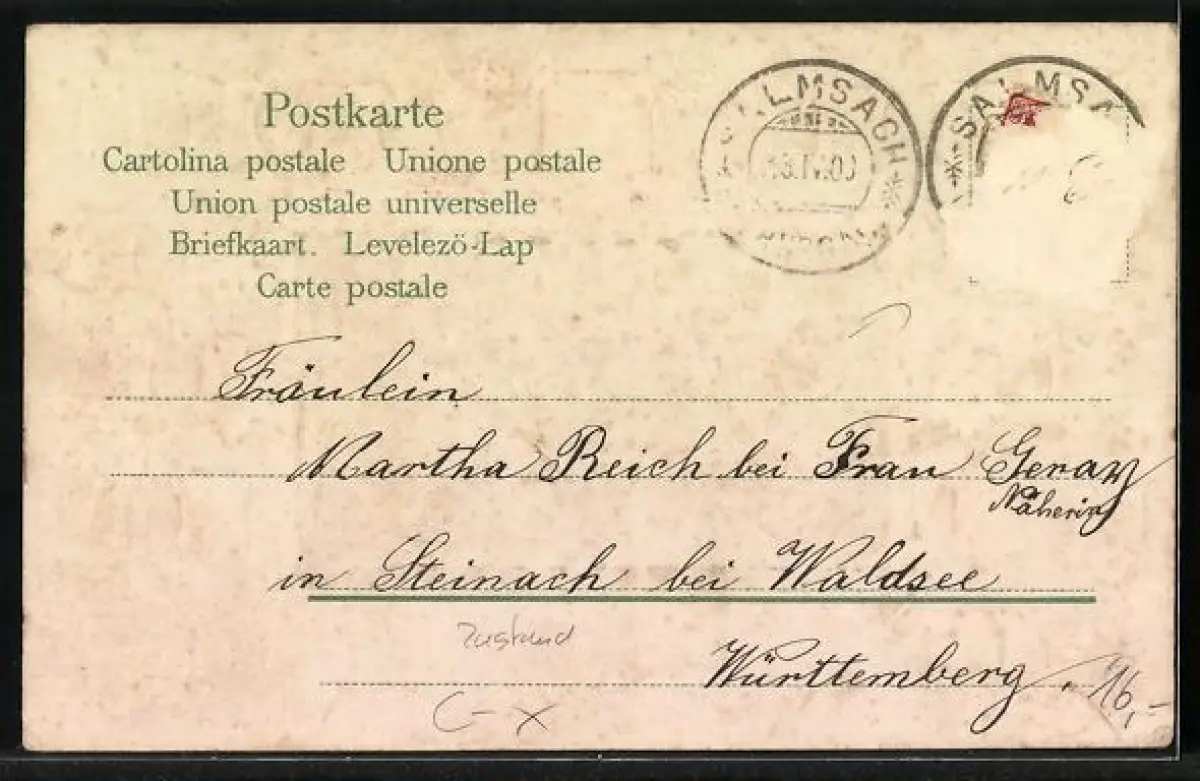 Postkarte
Cartolina postale Unione postale
Union postale universelle
Briefkaart. Levelező-Lap
Carte postale
SALMSACH
SALMSA
Fräulein
Martha Reich bei Frau Geray
Näherin
in Steinach bei Waldsee
Zustand
Württemberg.
16,-
C-x